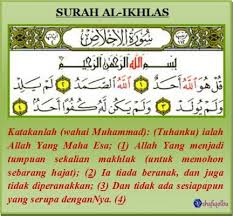 SURAH AL-IKHLAS
سورة الإخلاص
بسم الله الرحمن الرحيم
قُلْ هُوَ اللَّهُ أَحَدٌ ١ اللَّهُ الصَّمَدُ ٢ لَمْ يَلِدْ
وَلَمْ يُولَدْ ٣ وَلَمْ يَكُن لَّهُ كُفُوًا أَحَدٌ ٤
Katakanlah (wahai Muhammad): (Tuhanku) ialah
Allah Yang Maha Esa; (1) Allah Yang menjadi
tumpuan sekalian makhlak (untuk memohon
sebarang hajat); (2) Ia tiada beranak, dan juga
tidak diperanakkan; (3) Dan tidak ada sesiapapun
yang serupa denganNya. (4)